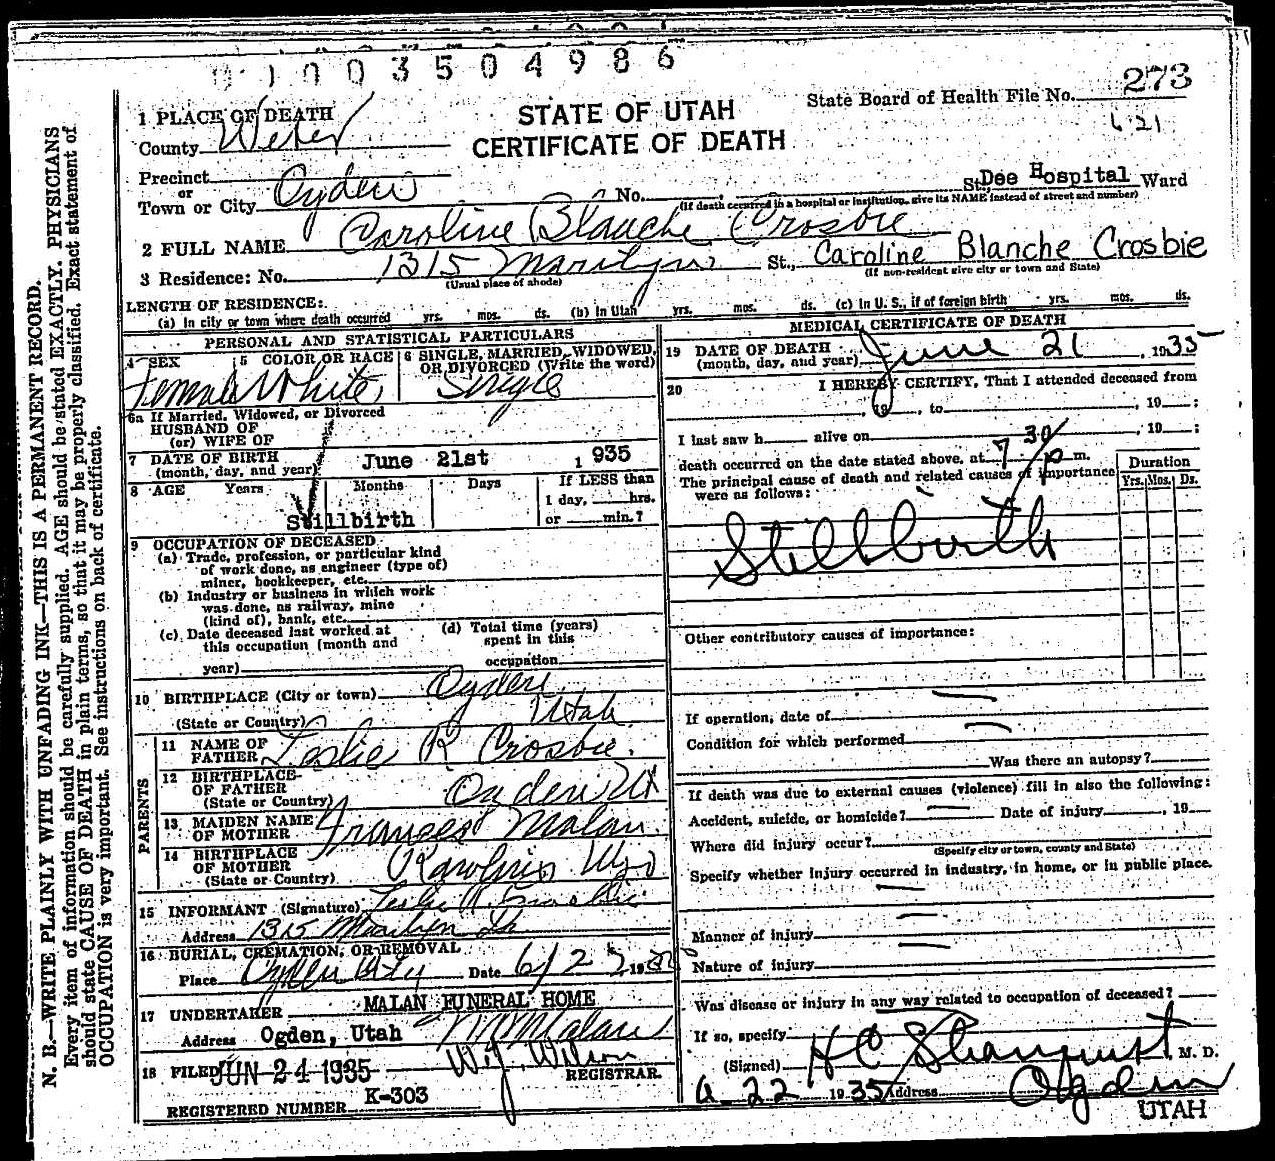 01003504986
273
State Board of Health File No.
6 21
STATE OF UTAH
CERTIFICATE OF DEATH
1 PLACE OF DEATH
County Weber
Precinct
or
Town or City Ogden No. St., Dee Hospital Ward
(If death occurred in a hospital or institution, give its NAME instead of street and number)
2 FULL NAME Caroline Blanche Crosbie
3 Residence: No. 1315 Marilyn St., Caroline Blanche Crosbie
(Usual place of abode) (If non-resident give city or town and State)
LENGTH OF RESIDENCE:
(a) In city or town where death occurred yrs. mos. ds. (b) In Utah yrs. mos. ds. (c) In U. S., if of foreign birth yrs. mos. ds.
PERSONAL AND STATISTICAL PARTICULARS
4 SEX 5 COLOR OR RACE 6 SINGLE, MARRIED, WIDOWED, OR DIVORCED (Write the word)
Female White Single
6a If Married, Widowed, or Divorced
HUSBAND OF
(or) WIFE OF
7 DATE OF BIRTH
(month, day, and year) June 21st 1935
8 AGE Years Months Days If LESS than
1 day, hrs.
or min.?
Stillbirth
9 OCCUPATION OF DECEASED
(a) Trade, profession, or particular kind
of work done, as engineer (type of)
miner, bookkeeper, etc.
(b) Industry or business in which work
was done, as railway, mine
(kind of), bank, etc.
(c) Date deceased last worked at
this occupation (month and
year)
(d) Total time (years)
spent in this
occupation
10 BIRTHPLACE (City or town) Ogden
(State or Country) Utah
PARENTS
11 NAME OF
FATHER Leslie R Crosbie.
12 BIRTHPLACE
OF FATHER
(State or Country) Ogden Ut
13 MAIDEN NAME
OF MOTHER Frances Malan.
14 BIRTHPLACE
OF MOTHER
(State or Country) Wyo
15 INFORMANT (Signature) Leslie R. Crosbie
Address 1315 Marilyn
16 BURIAL, CREMATION, OR REMOVAL
Place Ogden City Date 6/2 19
17 UNDERTAKER MALAN FUNERAL HOME
Address Ogden, Utah Malan
18 FILED JUN 24 1935 W. J. Wilson
REGISTRAR.
REGISTERED NUMBER K-303
MEDICAL CERTIFICATE OF DEATH
19 DATE OF DEATH
(month, day, and year) June 21, 1935
20 I HEREBY CERTIFY, That I attended deceased from
, 19 , to , 19 ;
I last saw h alive on , 19 ;
death occurred on the date stated above, at 7 30/p m.
The principal cause of death and related causes of importance
were as follows:
Duration
Yrs. Mos. Ds.
Stillbirth
Other contributory causes of importance:
If operation, date of
Condition for which performed
Was there an autopsy?
If death was due to external causes (violence) fill in also the following:
Accident, suicide, or homicide? Date of injury , 19
Where did injury occur?
(Specify city or town, county and State)
Specify whether injury occurred in industry, in home, or in public place.
Manner of injury
Nature of injury
Was disease or injury in any way related to occupation of deceased?
If so, specify
(Signed) H C Stranquist M. D.
6-22 1935 Address Ogden
UTAH
N. B.—WRITE PLAINLY WITH UNFADING INK—THIS IS A PERMANENT RECORD.
Every item of information should be carefully supplied. AGE should be stated EXACTLY. PHYSICIANS
should state CAUSE OF DEATH in plain terms, so that it may be properly classified. Exact statement of
OCCUPATION is very important. See instructions on back of certificate.